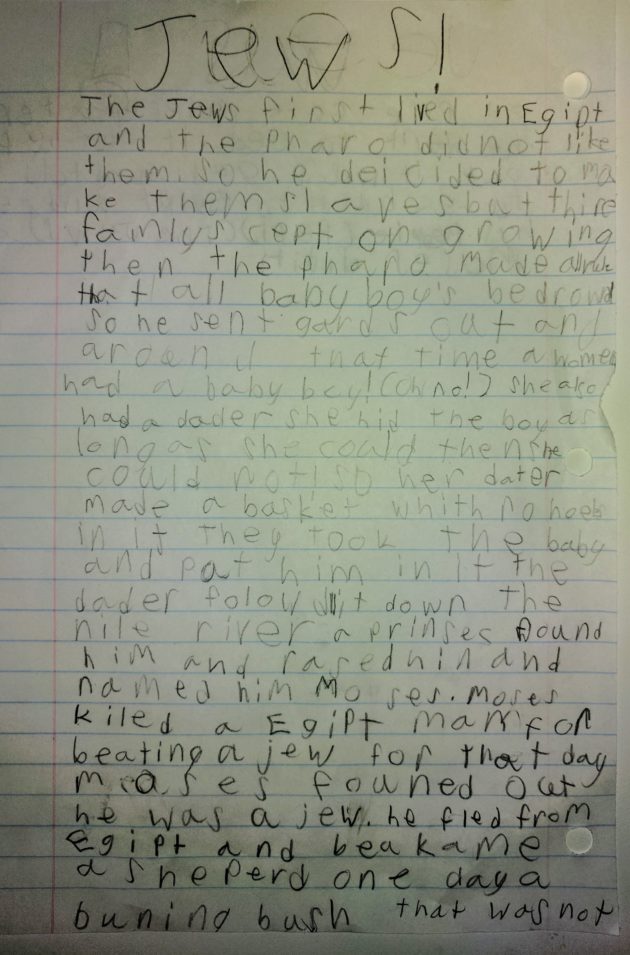 Jews!
The Jews first lived in Egipt
and the Pharo did not like
them. so he deicided to ma
ke them slaves but thire
famlys cept on growing
then the pharo made
that all baby boy's be drownd
so he sent gards out and
aroend that time a women
had a baby boy! (Oh no!) she
had a dader she hid the boy as
long as she could then she
could not! so her dater
made a basket whith no hoels
in it they took the baby
and pat him in it the
dader folow it down the
nile river a prinses found
him and rased him and
named him Moses. Moses
kiled a Egipt man for
beating a jew for that day
moses founed out
he was a jew. he fled from
Egipt and beakame
a sheperd one day a
buning bush that was not